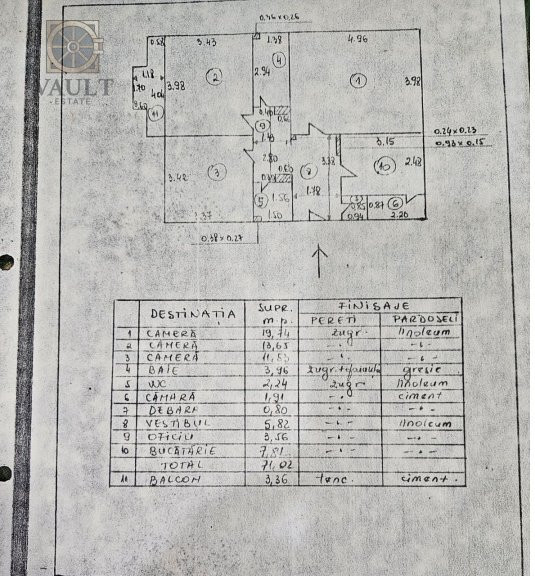 VAULT
ESTATE
0.46 x 0.26
0.58
3.43
1.38
4.96
4
2
1
2.94
1.18
1.70
3.98
4.04
3.98
11
0.40
9
1.40
0.24 x 0.23
3.15
0.93 x 0.15
2.80
3.42
3
8
3.38
10
2.48
5
1.56
1.78
0.85
0.87
6
1.37
1.50
0.94
2.20
0.38 x 0.27
DESTINAȚIA SUPR. m.p. FINISAJE
PEREȚI PARDOSELI
1 CAMERĂ 19,74 zugr. linoleum
2 CAMERĂ 13,65 -"- -"-
3 CAMERĂ 11,53 -"- -"-
4 BAIE 3,96 zugr.+faianță gresie
5 WC 2,24 zugr linoleum
6 CĂMARĂ 1,91 -"- ciment
7 DEBARA 0,80 -"- -"-
8 VESTIBUL 5,82 -"- linoleum
9 OFICIU 3,56 -"- -"-
10 BUCĂTĂRIE 7,81 -"- -"-
TOTAL 71,02
11 BALCON 3,36 tenc. ciment.